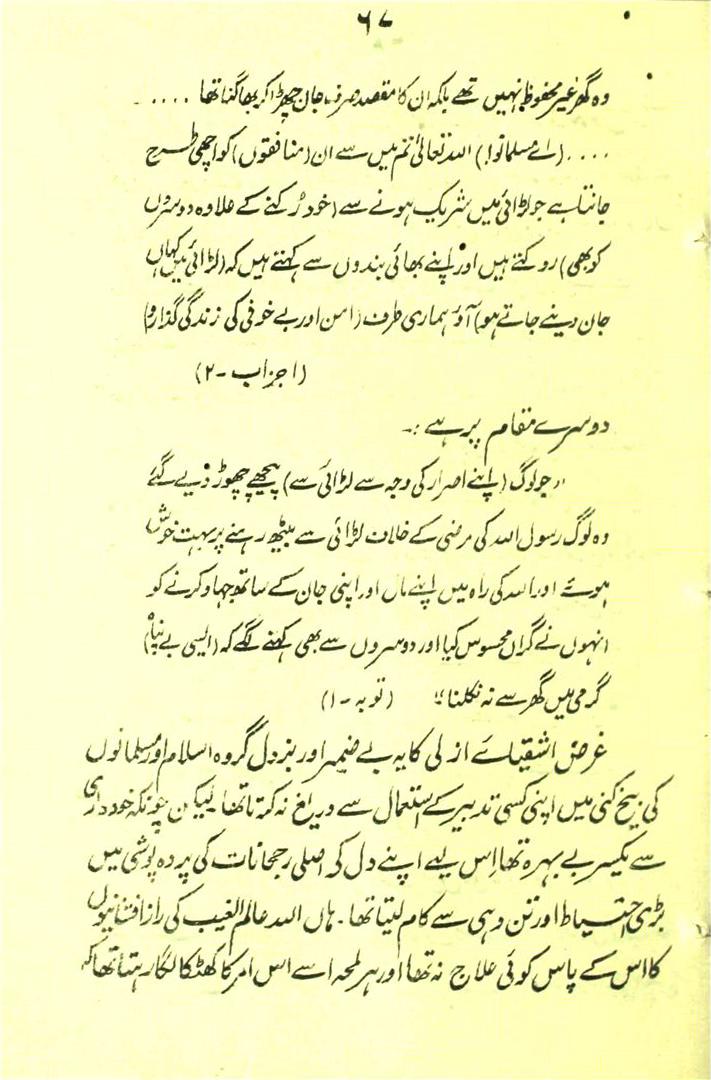 ۶۷
وہ گھر غیر محفوظ نہیں تھے بلکہ ان کا مقصد صرف جان چھڑا کر بھاگنا تھا ....
.... (اے مسلمانو!) اللہ تعالیٰ تم میں سے ان (منافقوں) کو اچھی طرح
جانتا ہے جو لڑائی میں شریک ہونے سے (خود رکنے کے علاوہ دوسروں
کو بھی) روکتے ہیں اور اپنے بھائی بندوں سے کہتے ہیں کہ (لڑائی میں کہاں
جان دینے جاتے ہو) آؤ ہماری طرف (امن اور بے خوفی کی زندگی گذارو)
(احزاب - ۲)
دوسرے مقام پر ہے :-
"جو لوگ (اپنے اصرار کی وجہ سے لڑائی سے) پیچھے چھوڑ دیے گئے
وہ لوگ رسول اللہ کی مرضی کے خلاف لڑائی سے بیٹھ رہنے پر بہت خوش
ہوئے اور اللہ کی راہ میں اپنے مال اور اپنی جان کے ساتھ جہاد کرنے کو
انہوں نے گراں محسوس کیا اور دوسروں سے بھی کہنے لگے کہ (ایسی بے پناہ)
گرمی میں گھر سے نہ نکلنا" (توبہ - ۱)
غرض اشقیائے ازلی کا یہ بے ضمیر اور بزدل گروہ اسلام اور مسلمانوں
کی بیخ کنی میں اپنی کسی تدبیر کے استعمال سے دریغ نہ کرتا تھا لیکن چونکہ خودداری
سے یکسر بے بہرہ تھا اس لیے اپنے دل کی اصلی رجحانات کی پردہ پوشی میں
بڑی احتیاط اور تن دہی سے کام لیتا تھا۔ ہاں اللہ عالم الغیب کی راز افشانیوں
کا اس کے پاس کوئی علاج نہ تھا اور ہر لمحہ اسے اس امر کا کھٹکا لگا رہتا تھا کہ